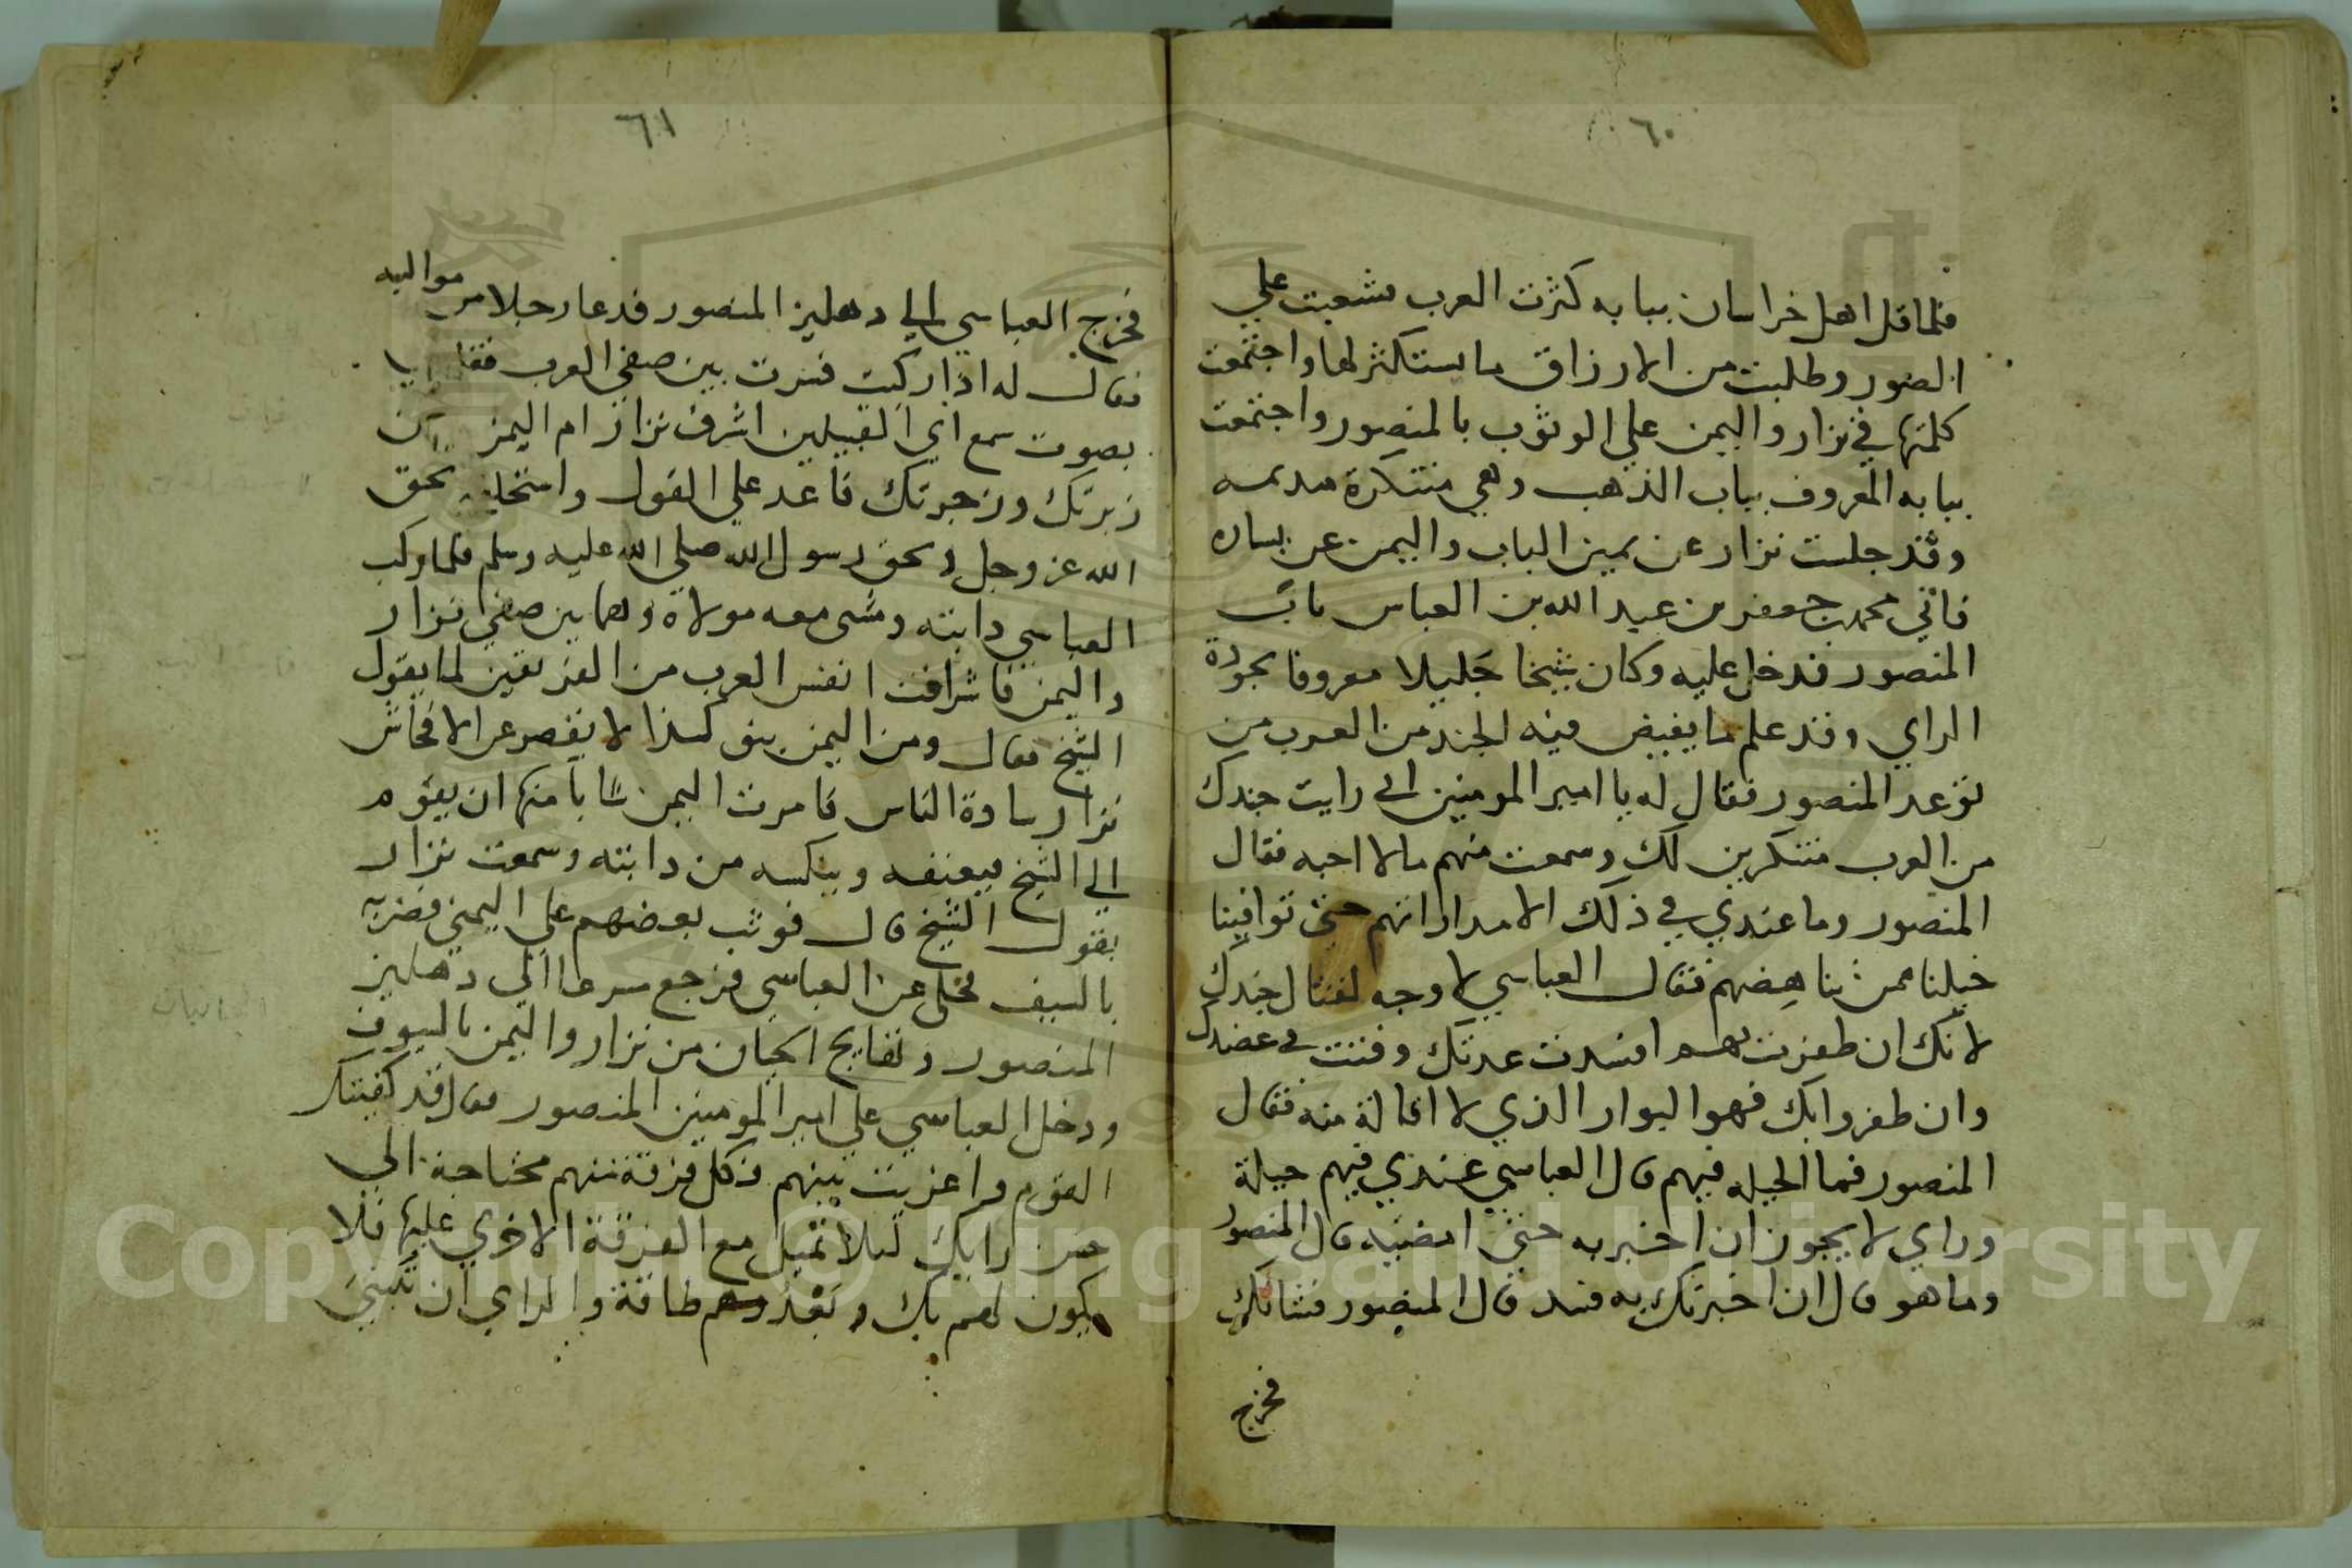 ٦٠
فلما قل اهل خراسان ببابه كثرت العرب فشعبت علي
المنصور وطلبت من الارزاق ما يستكثر لها واجتمعت
كلمتها في نزار واليمن علي الوثوب بالمنصور واجتمعت
ببابه المعروف بباب الذهب وهي متنكرة
وقد جلست نزار عن يمين الباب واليمن عن يساره
فاتي محمد بن جعفر بن عبد الله بن العباس باب
المنصور فدخل عليه وكان شيخا جليلا معروفا بجودة
الراي وقد علم ما يفيض فيه الجند من العرب من
توعد المنصور فقال له يا امير المومنين اني رايت جندك
من العرب متنكرين لك وسمعت منهم ما لا احبه فقال
المنصور وما عندي في ذلك الا مداراتهم حتى توافينا
خيلنا ممن نناهضهم فقال العباسي لا وجه لقتال جندك
لانك ان ظفرت بهم افسدت عدتك وفتت في عضدك
وان ظفروا بك فهوا البوار الذي لا اقالة منه فقال
المنصور فما الحيله فيهم قال العباسي عندي فيهم حيلة
وراي لا يجوز ان اخبر به حتى امضيه قال المنصور
وما هو قال ان اخبرتك به فسد قال المنصور فشانك
فخرج
٦١
فخرج العباسي الي دهليز المنصور فدعا رجلا من مواليه
فقال له اذا ركبت فسرت بين صفي العرب فقل يا
بصوت سمع اي القبيلين اشرف نزار ام اليمن
زبرتك وزجرتك فاعد علي القول واستحلفني بحق
الله عز وجل وبحق رسول الله صلي الله عليه وسلم فلما ركب
العباسي دابته ومشي معه مولاه وهما بين صفي نزار
واليمن فاشرافت انفس العرب من الفريقين لما يقول
الشيخ فقال ومن اليمن لا يقصر عن الافحاش
نزار سادة الناس فامرت اليمن شابا منها ان يقوم
الي الشيخ فيعنفه وينكسه من دابته وسمعت نزار
بقول الشيخ قال فوثب بعضهم علي اليمني فضربه
بالسيف فخلي عن العباسي فرجع سرعا الي دهليز
المنصور وتفايج الحيان من نزار واليمن بالسيوف
ودخل العباسي علي امير المومنين المنصور فقال قد كفيتك
القوم واغريت بينهم فكل فرقة منهم محتاجة الي
حسن رايك ليلا تميل مع الفرقة الاخري عليها فلا
يكون لهم بك وبعدوهم طاقة والراي ان تبني